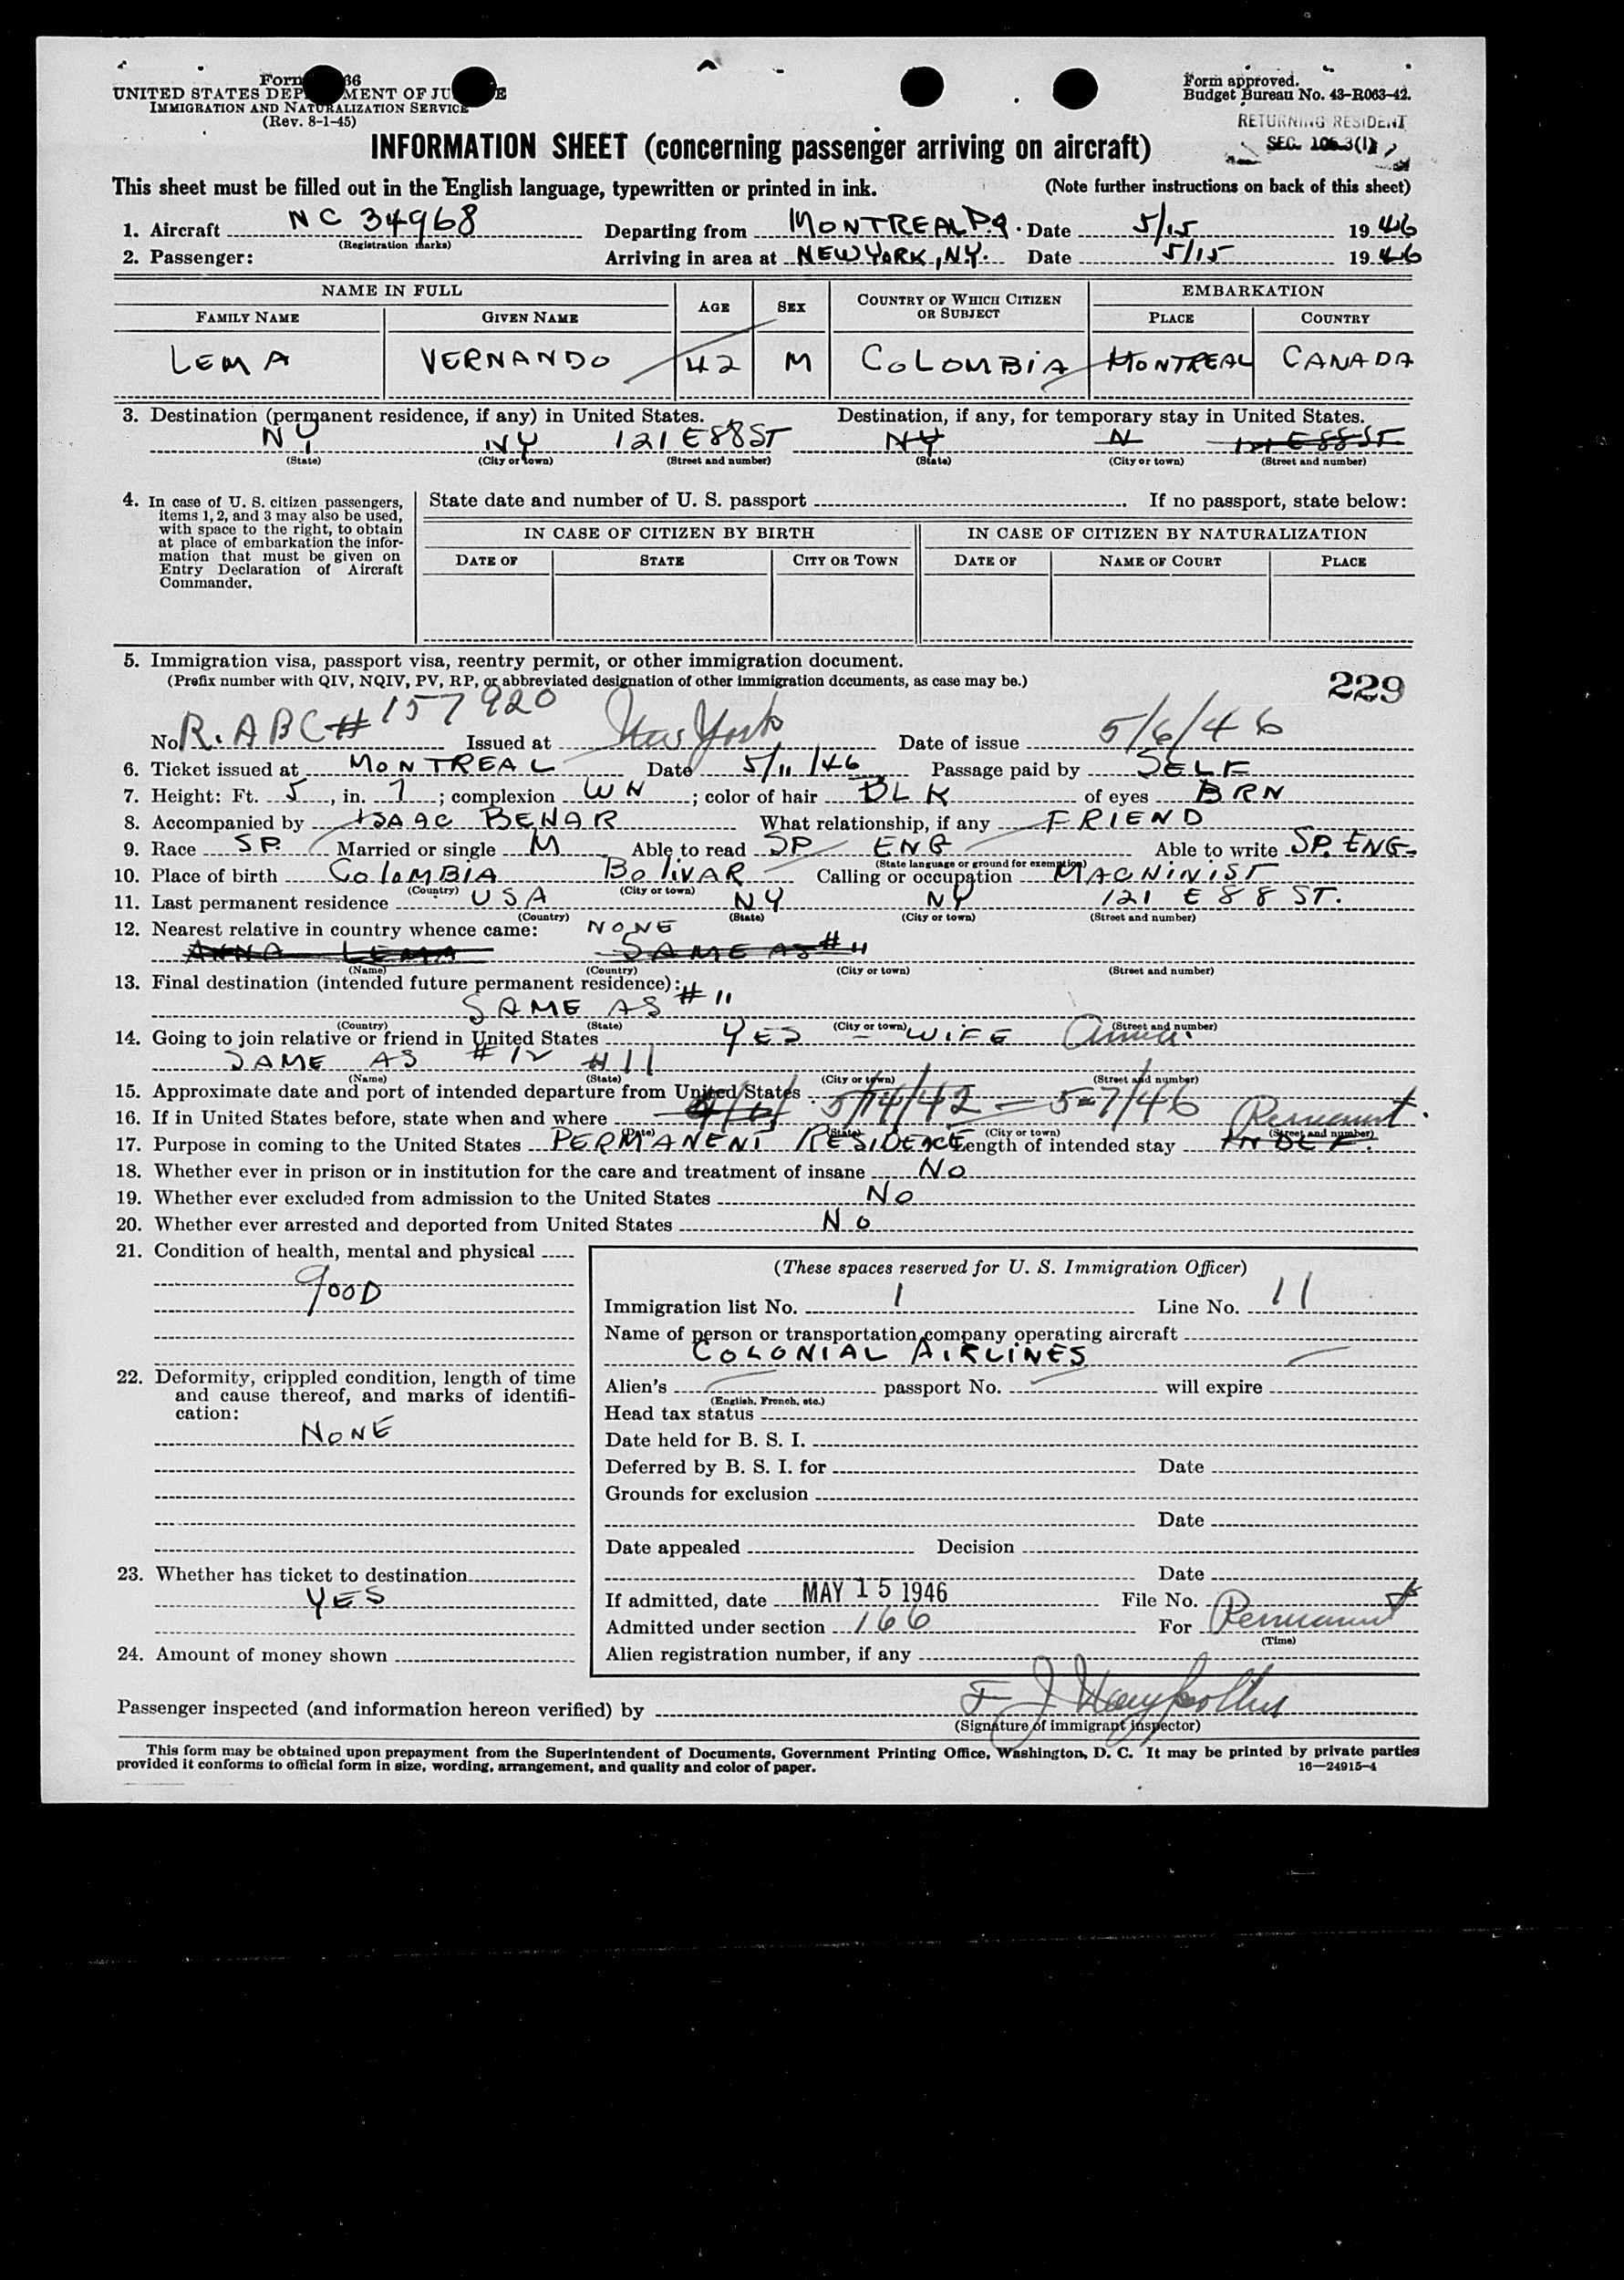 Form 66
UNITED STATES DEPARTMENT OF JUSTICE
IMMIGRATION AND NATURALIZATION SERVICE
(Rev. 8-1-45)
Form approved.
Budget Bureau No. 43-R063-42.
RETURNING RESIDENT
SEC.
INFORMATION SHEET (concerning passenger arriving on aircraft)
This sheet must be filled out in the English language, typewritten or printed in ink. (Note further instructions on back of this sheet)
1. Aircraft NC 34968 Departing from MONTREAL P.Q. Date 5/15 1946
(Registration marks)
2. Passenger: Arriving in area at NEW YORK, N.Y. Date 5/15 1946
NAME IN FULL AGE SEX COUNTRY OF WHICH CITIZEN OR SUBJECT EMBARKATION
FAMILY NAME GIVEN NAME PLACE COUNTRY
LEMA VERNANDO 42 M COLOMBIA MONTREAL CANADA
3. Destination (permanent residence, if any) in United States. Destination, if any, for temporary stay in United States.
NY NY 121 E 88 ST NY N 121 E 88 ST
(State) (City or town) (Street and number) (State) (City or town) (Street and number)
4. In case of U. S. citizen passengers, items 1, 2, and 3 may also be used, with space to the right, to obtain at place of embarkation the information that must be given on Entry Declaration of Aircraft Commander.
State date and number of U. S. passport If no passport, state below:
IN CASE OF CITIZEN BY BIRTH IN CASE OF CITIZEN BY NATURALIZATION
DATE OF STATE CITY OR TOWN DATE OF NAME OF COURT PLACE
5. Immigration visa, passport visa, reentry permit, or other immigration document.
(Prefix number with QIV, NQIV, PV, RP, or abbreviated designation of other immigration documents, as case may be.) 229
No. R.ABC# 157920 Issued at New York Date of issue 5/6/46
6. Ticket issued at MONTREAL Date 5/11/46 Passage paid by SELF
7. Height: Ft. 5, in. 7; complexion WN; color of hair BLK of eyes BRN
8. Accompanied by ISAAC BENAR What relationship, if any FRIEND
9. Race SP. Married or single M Able to read SP ENG Able to write SP. ENG.
(State language or ground for exemption)
10. Place of birth COLOMBIA BOLIVAR Calling or occupation MACNINIST
(Country) (City or town)
11. Last permanent residence USA NY NY 121 E 88 ST.
(Country) (State) (City or town) (Street and number)
12. Nearest relative in country whence came: NONE
ANNA LEMA SAME AS #11
(Name) (Country) (City or town) (Street and number)
13. Final destination (intended future permanent residence):
SAME AS #11
(Country) (State) (City or town) (Street and number)
14. Going to join relative or friend in United States YES - WIFE
SAME AS #12 #11
(Name) (State) (City or town) (Street and number)
15. Approximate date and port of intended departure from United States
16. If in United States before, state when and where 5/14/42 - 5-7/46 Permanent.
(Date) (State) (City or town) (Street and number)
17. Purpose in coming to the United States PERMANENT RESIDENCE Length of intended stay INDEF.
18. Whether ever in prison or in institution for the care and treatment of insane NO
19. Whether ever excluded from admission to the United States NO
20. Whether ever arrested and deported from United States NO
21. Condition of health, mental and physical
GOOD
22. Deformity, crippled condition, length of time and cause thereof, and marks of identification:
NONE
23. Whether has ticket to destination
YES
24. Amount of money shown
(These spaces reserved for U. S. Immigration Officer)
Immigration list No. 1 Line No. 11
Name of person or transportation company operating aircraft
COLONIAL AIRLINES
Alien's passport No. will expire
(English, French, etc.)
Head tax status
Date held for B. S. I.
Deferred by B. S. I. for Date
Grounds for exclusion
Date
Date appealed Decision
Date
If admitted, date MAY 15 1946 File No.
Admitted under section 166 For Permanent
(Time)
Alien registration number, if any
Passenger inspected (and information hereon verified) by
(Signature of immigrant inspector)
This form may be obtained upon prepayment from the Superintendent of Documents, Government Printing Office, Washington, D. C. It may be printed by private parties
provided it conforms to official form in size, wording, arrangement, and quality and color of paper. 16—24915-4